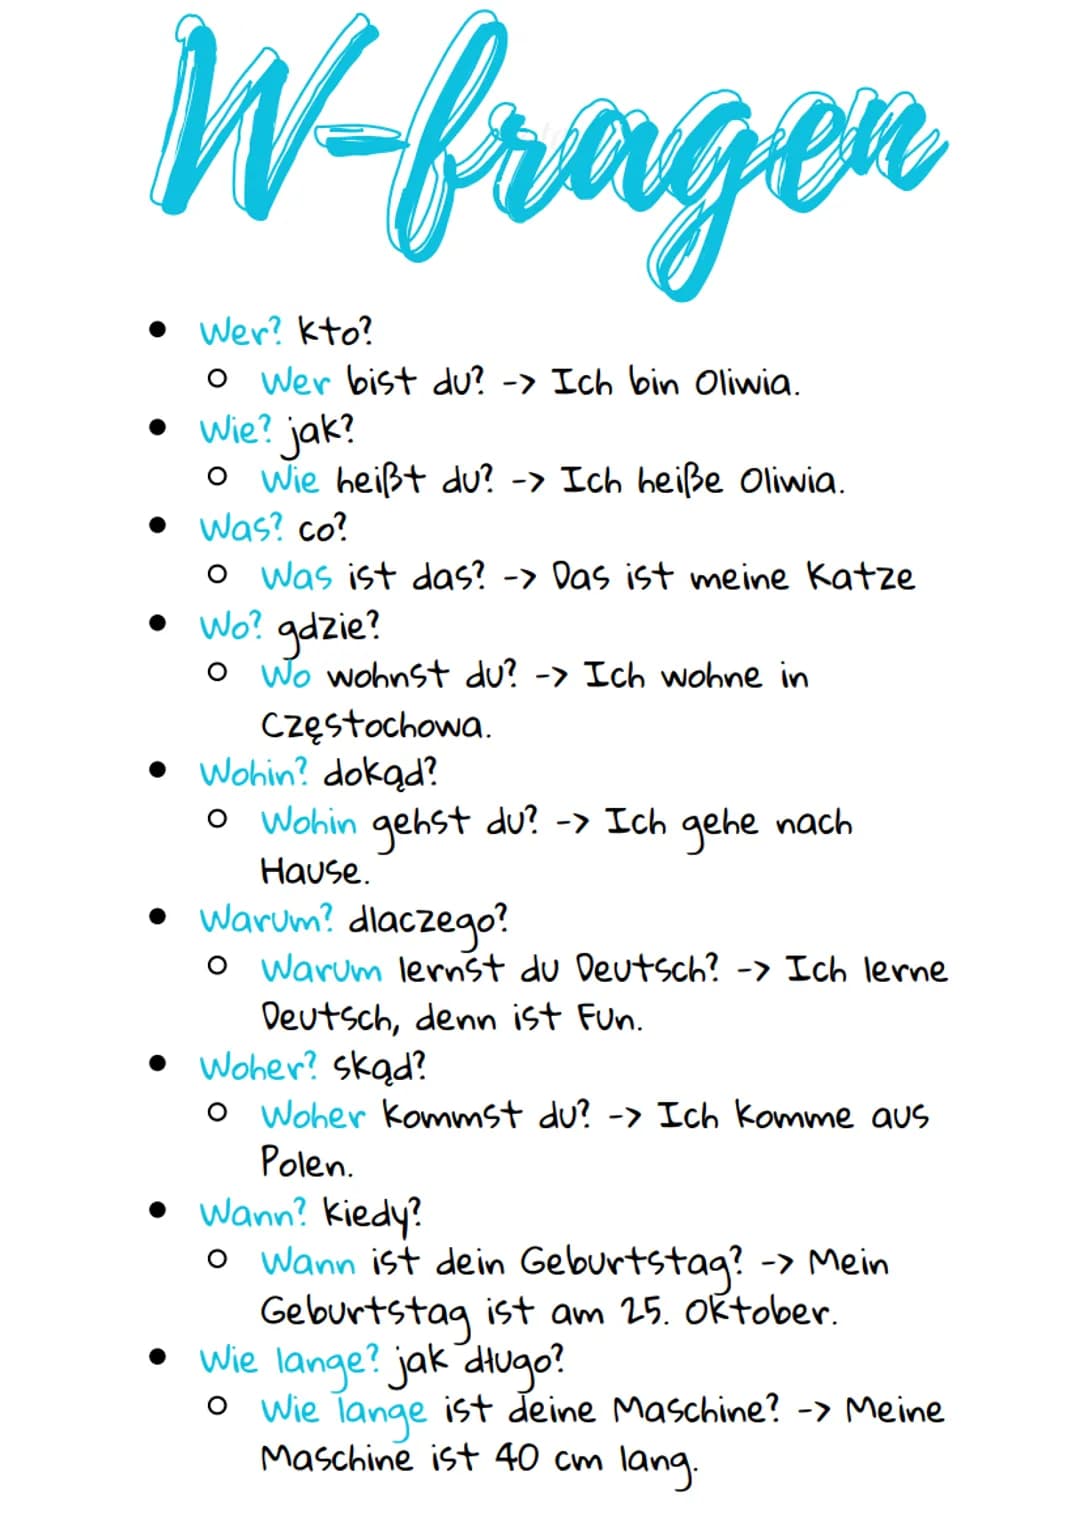 W-fragen
• Wer? kto?
○ Wer bist du? -> Ich bin Oliwia.
• Wie? jak?
○ Wie heißt du? -> Ich heiße Oliwia.
• Was? co?
○ Was ist das? -> Das ist meine Katze
• Wo? gdzie?
○ Wo wohnst du? -> Ich wohne in
Częstochowa.
• Wohin? dokąd?
○ Wohin gehst du? -> Ich gehe nach
Hause.
• Warum? dlaczego?
○ Warum lernst du Deutsch? -> Ich lerne
Deutsch, denn ist Fun.
• Woher? skąd?
○ Woher kommst du? -> Ich komme aus
Polen.
• Wann? kiedy?
○ Wann ist dein Geburtstag? -> Mein
Geburtstag ist am 25. Oktober.
• Wie lange? jak długo?
○ Wie lange ist deine Maschine? -> Meine
Maschine ist 40 cm lang.